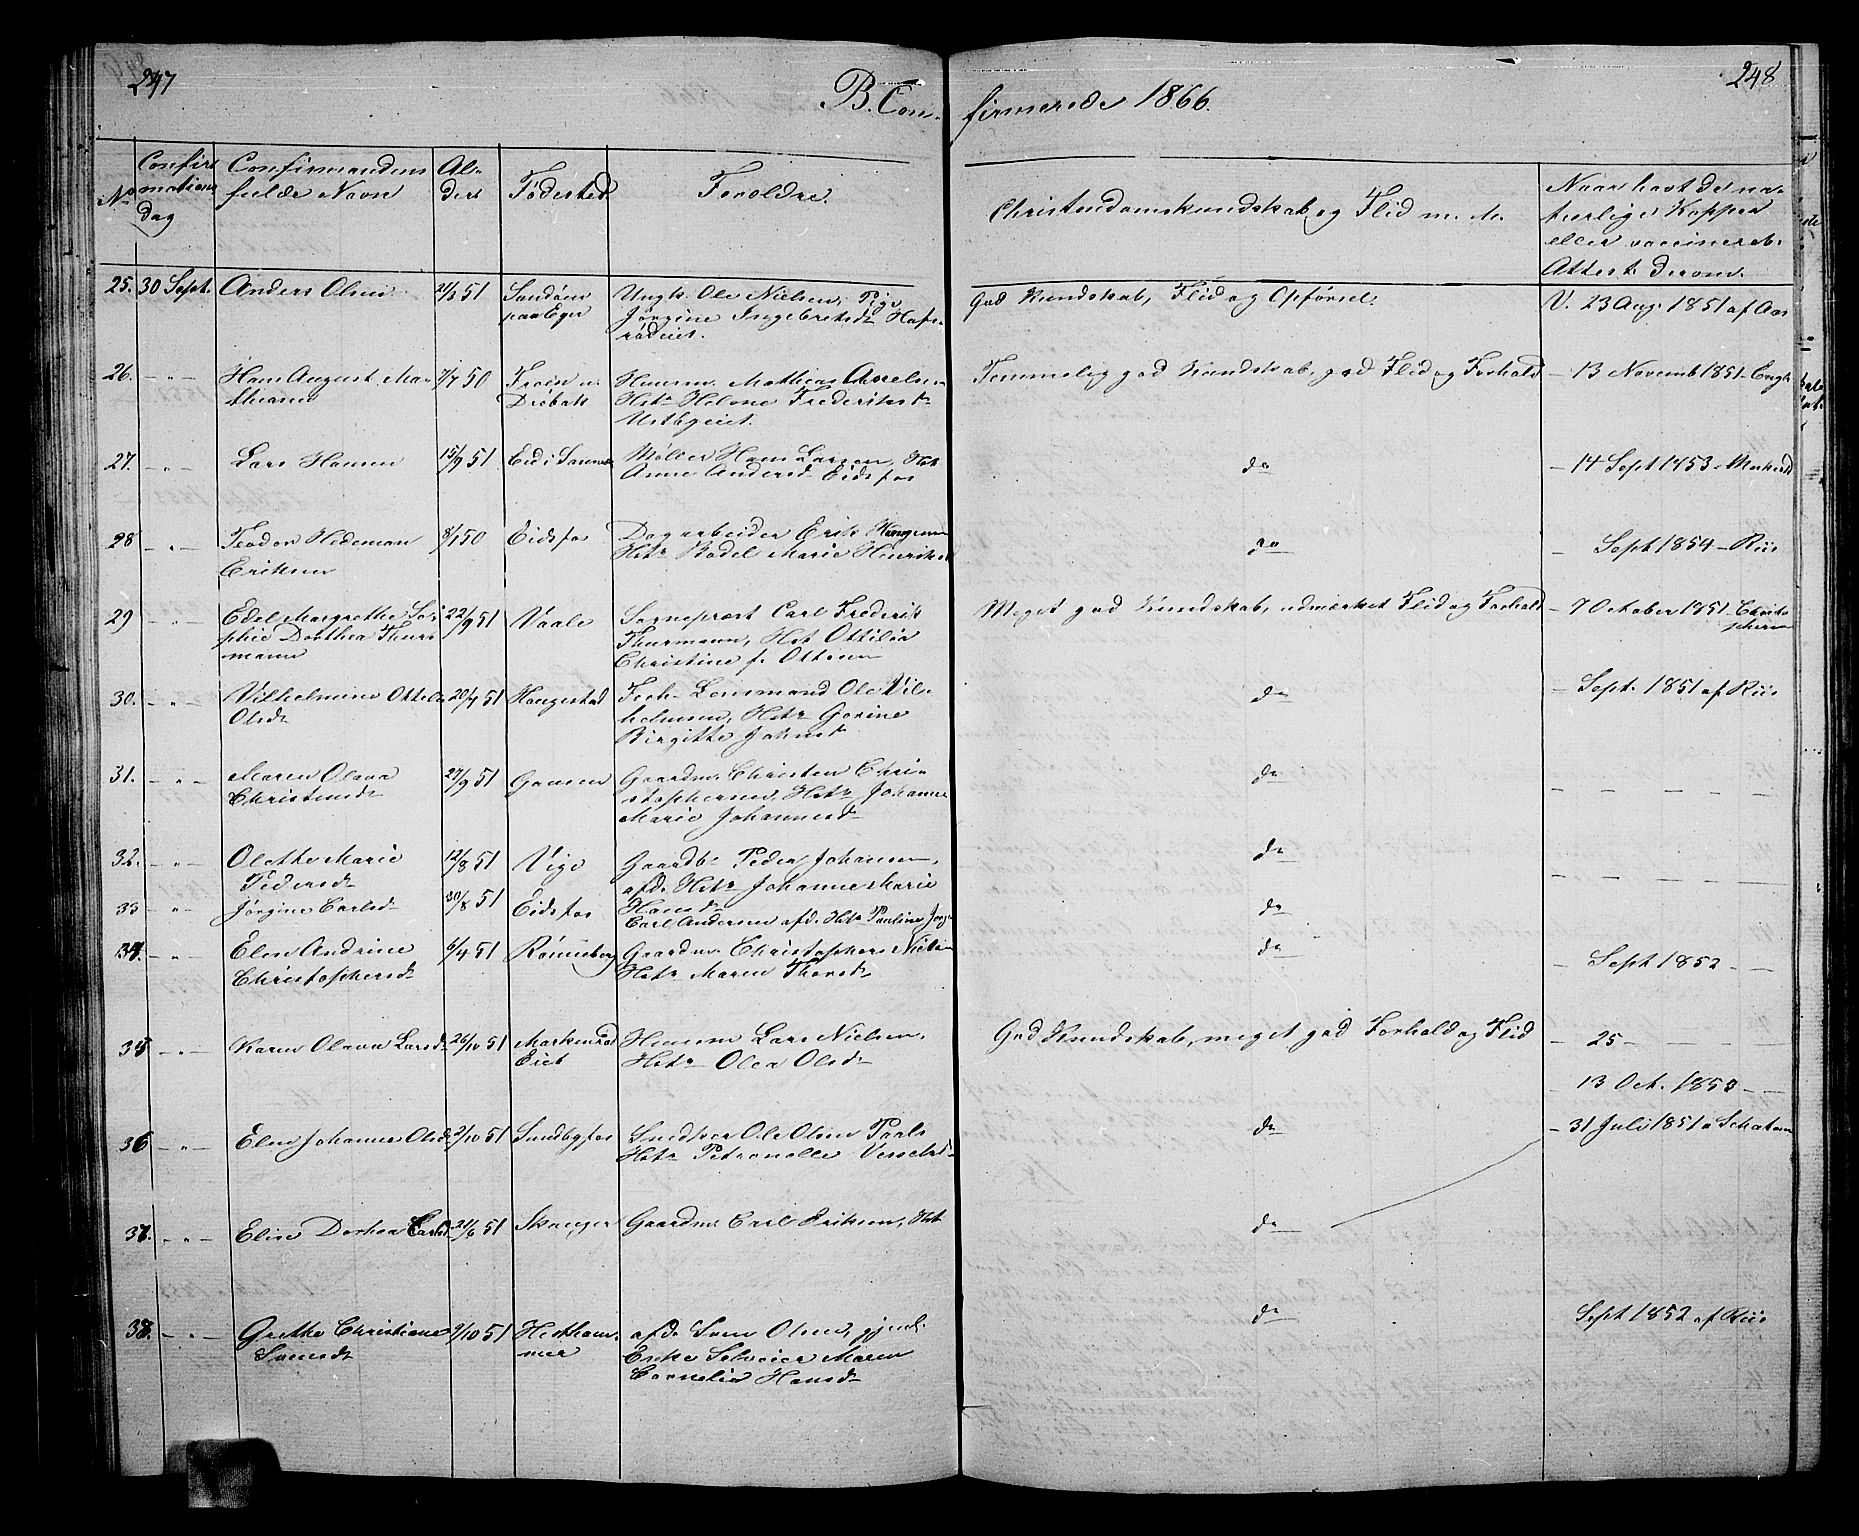 247
248
B. Con-
firmerede 1866.
No
Confir
mations
dag
Confirmandens
fulde Navn
Al-
ders
Födested
Foreldre.
Christendomskundskab og Flid m. m.
Naar havt de na-
turlige Kopper
eller vaccineret.
Attest derom.
25. 30 Sept. Anders Olsen 21/3 51
paa Eger
Ungk. Ole Nielsen, Pige
Jörgine Ingebretsdr
God Kundskab, Flid og Opförsel
V. 23 Aug. 1851 af Aas
26. - " - Hans August Ma-
thisen
7/7 50
Dröbak
Huusm. Mathias Axelsen
Hstr Helene Frederiksdr
Temmelig god Kundskab, god Flid og Forhold
- 13 Novemb 1851 - Engh
27. - " - Lars Hansen 15/9 51
Möller Hans Larsen, Hst
Anne Andersd Eidsfos
do
- 14 Sept 1853 -
28 - " - Teodor Hedeman
Eriksen
8/1 50 Eidsfos
Dagarbeider Erik
Hstr Bodel Marie Henriksd
do
- Sept 1854 - Riis
29 - " - Edel Margrethe So-
phie Dorthea Thur-
mann
22/9 51 Vaale
Sogneprest Carl Frederik
Thurmann, Hst Ottilia
Christine f. Ottesen
Meget god Kundskab, udmærket Flid og Forhold
- 7 October 1851 - Christo
phersen
30. - " - Vilhelmine Ottilia
Olsdr
20/7 51 Haugestad
Forh. Lensmand Ole Vil-
helmsen, Hstr Gorine
Birgitte Johnsdr
do
- Sept. 1851 af Riis
31. - " - Maren Olava
Christensdr
27/9 51
Gaardm. Christen Chri-
stophersen, Hstr Johanne
Marie Johannesdr
do
- - - - - -
32. - " - Olette Marie
Pedersdr
12/8 51 Vige
Gaardbr Peder Johansen,
afd. Hstr Johanne Marie
Hansdr
do
- - - - - -
33 - " - Jörgine Carlsdr 30/8 51 Eidsfos
Carl Andersen afd. Hstr Pauline
do
34. - " - Elen Andrine
Christophersdr
6/4 51 Rönneberg
Gaardm. Christopher Nielsen
Hstr Maren Thorsdr
do
- Sept 1852 -
35 - " - Karen Olava Larsdr 26/10 51 Markenrud
Eiet
Huusm Lars Nielsen,
Hstr Olea Olsdr
God Kundskab, meget god Forhold og Flid
- 25 -
- 13 Oct. 1853 -
36 - " - Elen Johanne Olsdr 2/10 51 Sundbyfos
Ole Olsen
Hstr Petronelle
do
- 31 Juli 1851
37. - " - Elise Dorthea Carlsd 21/6 51 Skauger
Gaardm. Carl Eriksen, Hst
do
38. - " - Grethe Christiane
Svensdr
9/10 51 Hestham-
mer
afd. Sven Olsen,
Enke Maren
Cornelia Hansdr
do
Sept 1852 af Riis